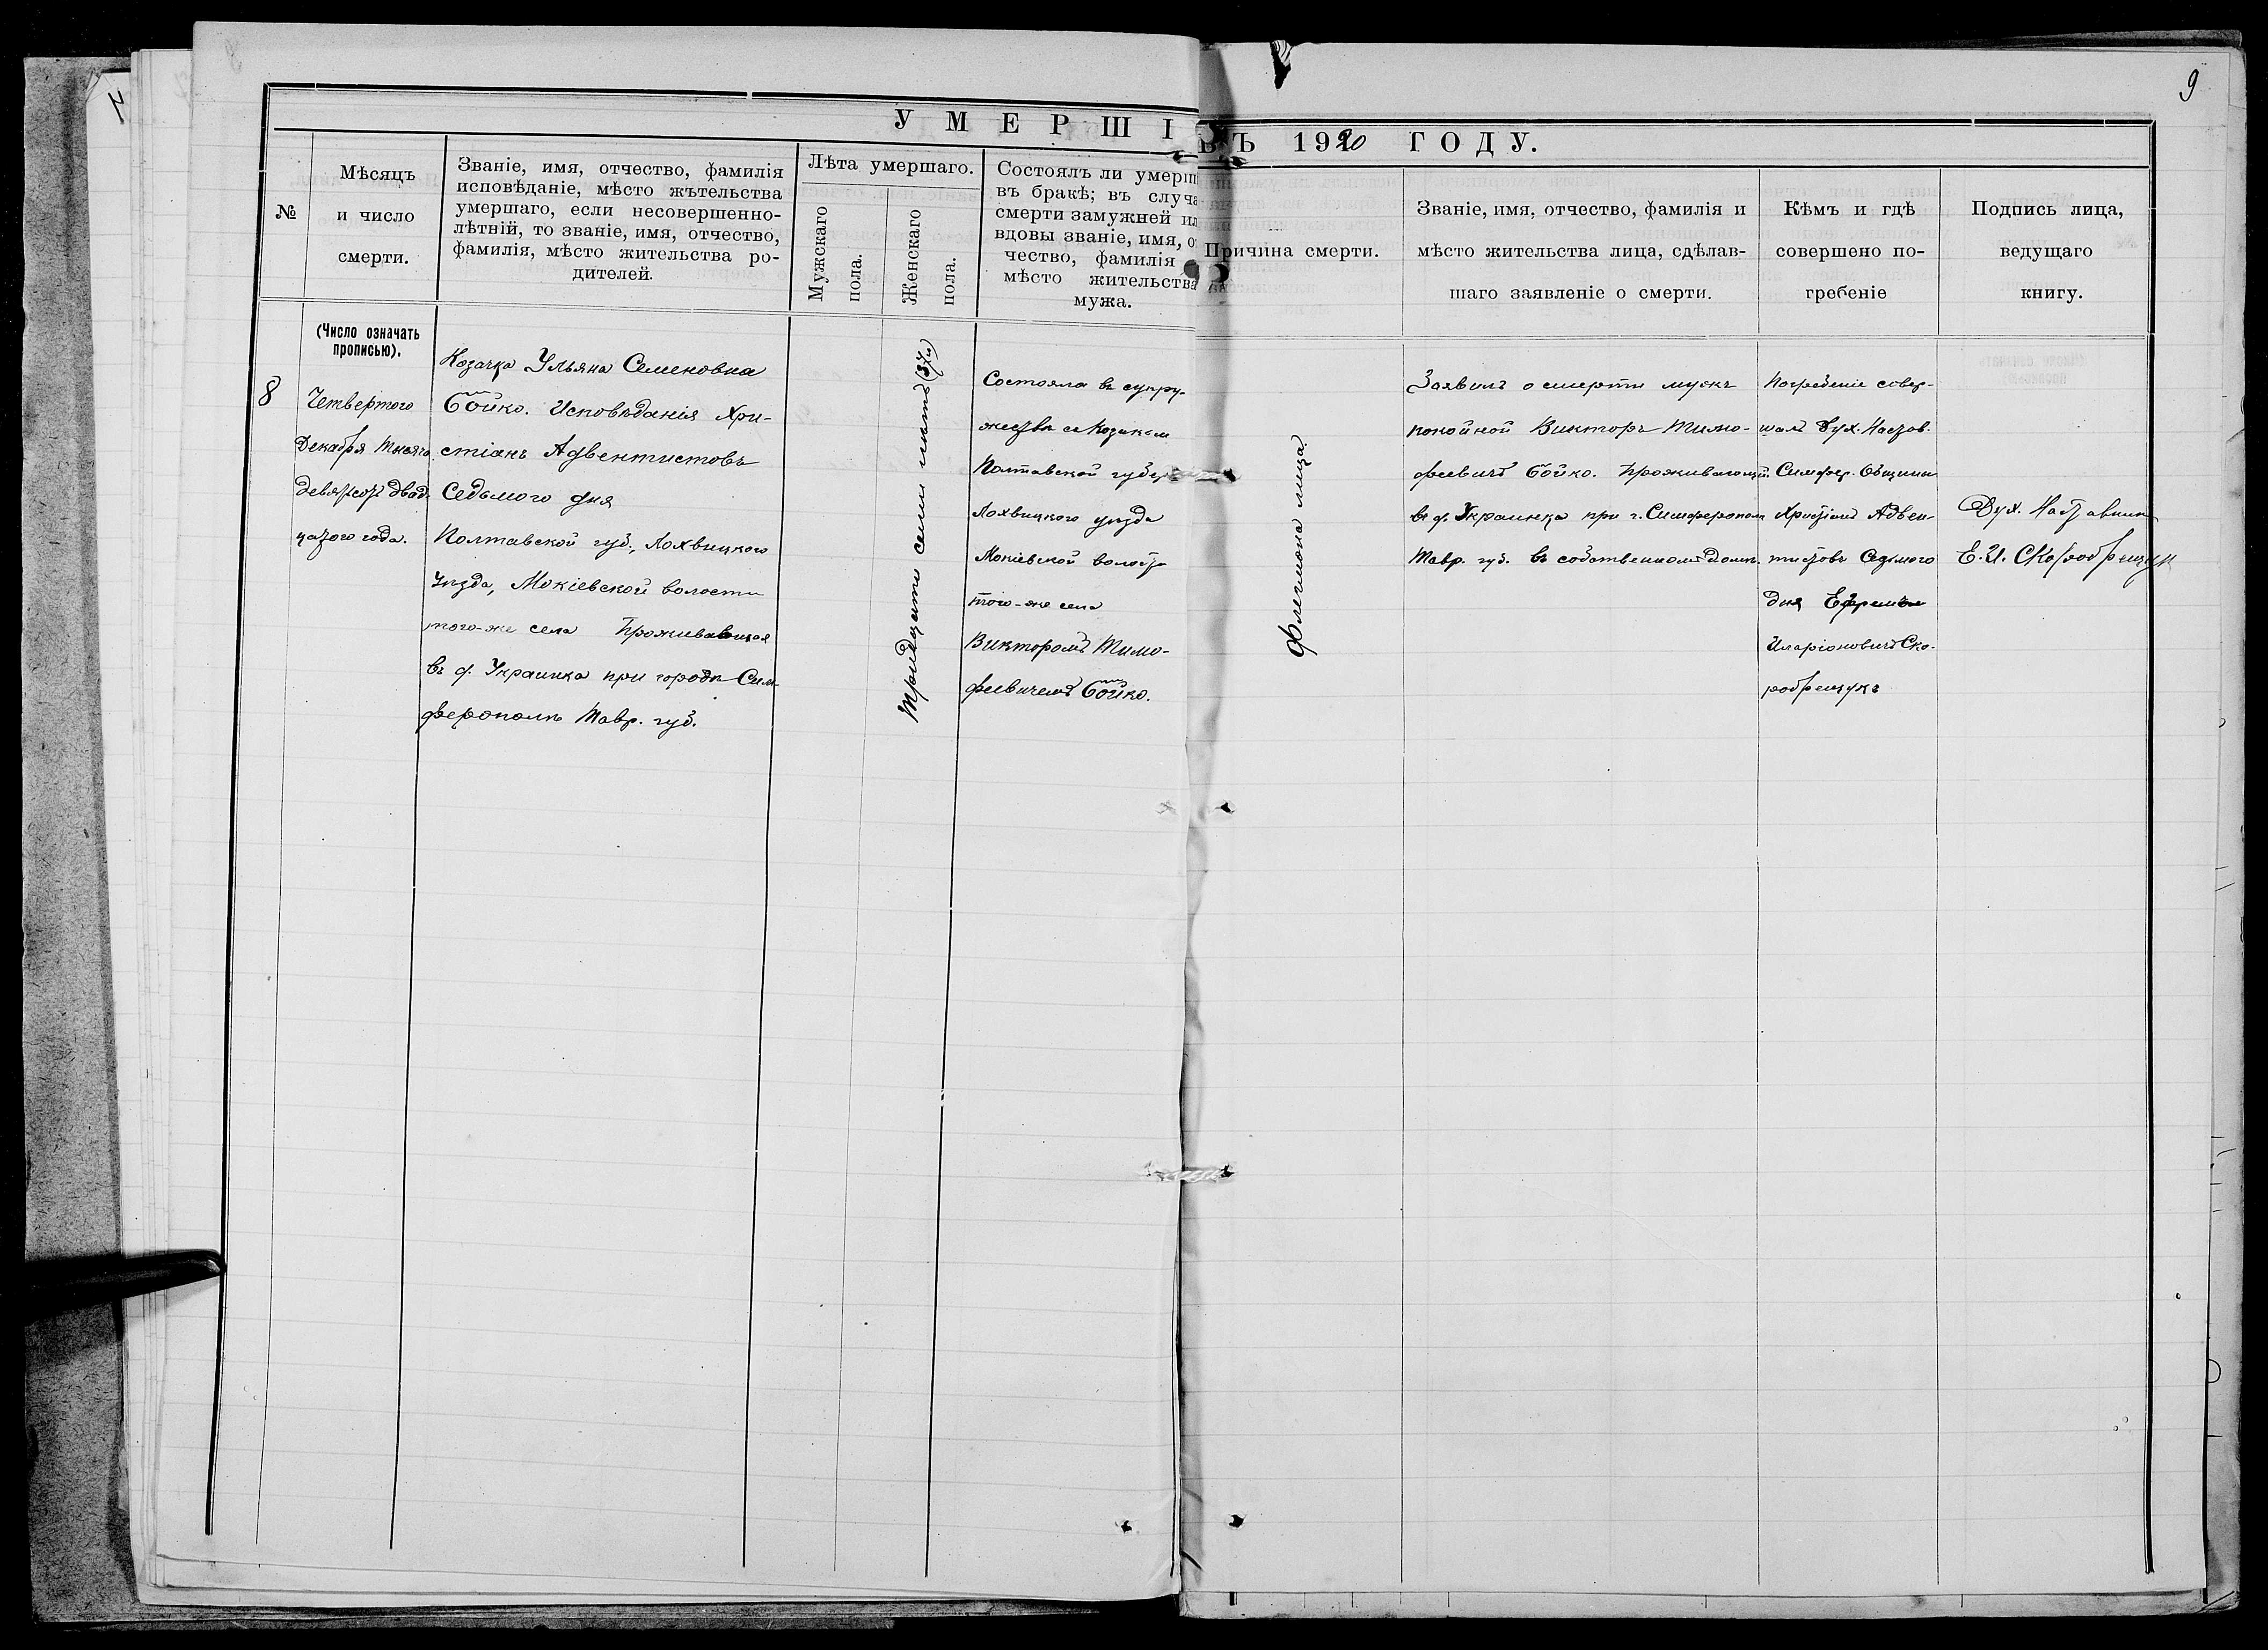 9
УМЕРШІ
ВЪ 1920 ГОДУ.
№
Мѣсяцъ
и число
смерти.
Званіе, имя, отчество, фамилія
исповѣданіе, мѣсто жътельства
умершаго, если несовершенно-
лѣтній, то званіе, имя, отчество,
фамилія, мѣсто жительства ро-
дителей.
Лѣта умершаго.
Мужскаго
пола.
Женскаго
пола.
Состоялъ ли умерш
въ бракѣ; въ случа
смерти замужней ил
вдовы званіе, имя, о
чество, фамилія
мѣсто жительства
мужа.
Причина смерти.
Званіе, имя, отчество, фамилія и
мѣсто жительства лица, сдѣлав-
шаго заявленіе о смерти.
Кѣмъ и гдѣ
совершено по-
гребеніе
Подпись лица,
ведущаго
книгу.
(Число означать
прописью).
8
Четвертого
Декабря Тысяча
девятсот двад
цатого года.
Козачка Ульяна Семеновна
Бойко. Исповѣданія Хри-
стіанъ Адвентистовъ
Седьмого дня
Полтавской губ., Лохвицкого
уѣзда, Мокіевской волости
того-же села Проживавшая
въ д. Украинка при городѣ Сим-
ферополѣ Тавр. губ.
Тридцати семи лѣтъ (37и)
Состояла въ супру-
жествѣ съ Козаком
Полтавской губер
Лохвицкого уѣзда
Мокіевской волости
того-же села
Викторомъ Тимо-
феевичемъ Бойко.
Флегмона лица
Заявилъ о смерти мужъ
покойной Викторъ Тимо-
феевичъ Бойко. Проживающій
въ д. Украинка при г. Симферополѣ
Тавр. губ. въ собственномъ домѣ.
Погребеніе совер-
шалъ Дух. Настав.
Симфер. Общины
Христіанъ Адвен-
тистовъ Седьмого
дня Ефремъ
Иларіоновичъ Ско-
робрещукъ
Дух. Наставник
Е. И. Скоробрещук